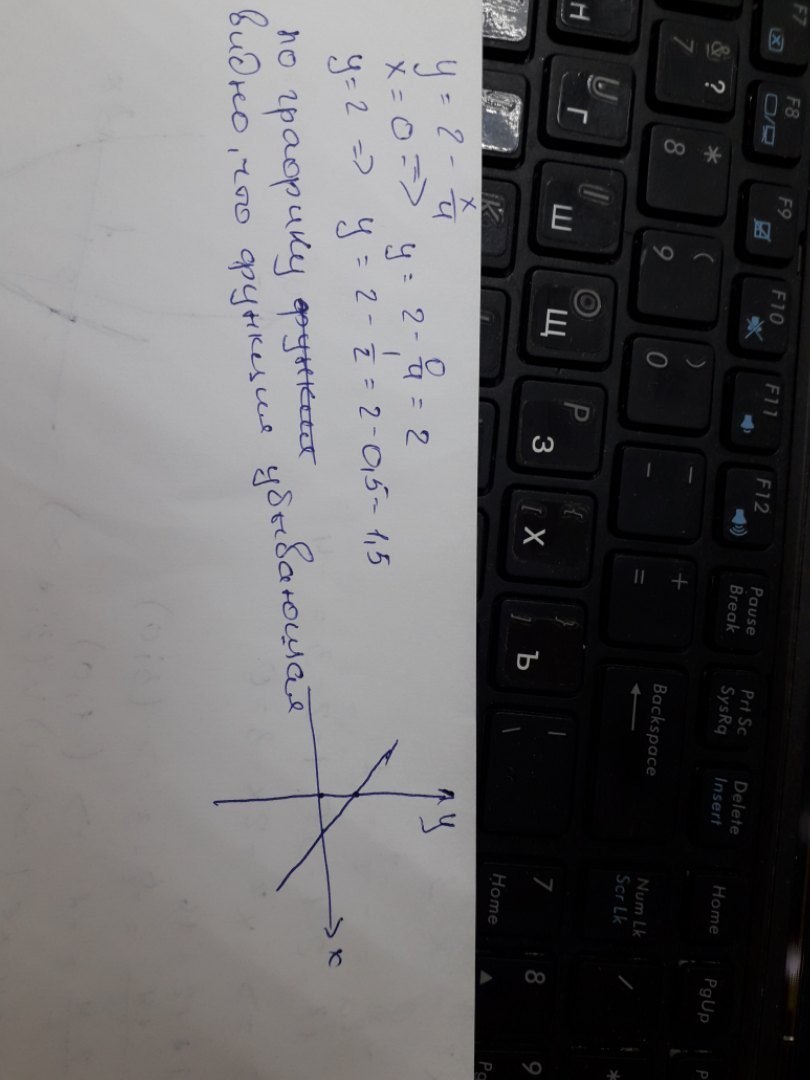 y = 2 - x/4
x = 0 => y = 2 - 0/4 = 2
y = 2 => y = 2 - 1/2 = 2 - 0,5 = 1,5
по графику функция
видно, что функция убывающая
y
x
F7
F8
F9
F10
F11
F12
Pause Break
Prt Sc SysRq
Delete Insert
Home
PgUp
& ? 7
* 8
( 9
) 0
_ -
+ =
Backspace
Num Lk Scr Lk
/
*
Н
U Г
I Ш
O Щ
P З
{ [ Х
} ] Ъ
| \
7 Home
8
9
K